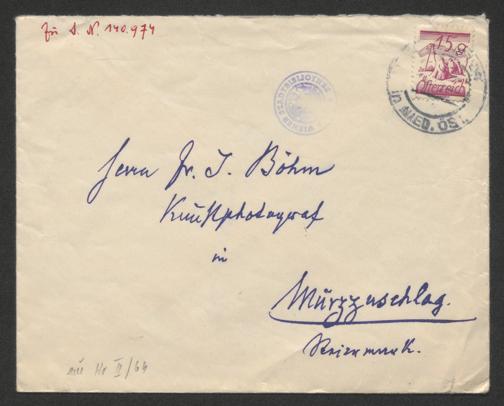 Zu I. N. 140.974
15 g
Österreich
WIENER STADTBIBLIOTHEK
NIED. ÖST.
Herrn Fr. J. Böhm
Kunstphotograf
in
Mürzzuschlag.
Steiermark.
II/64